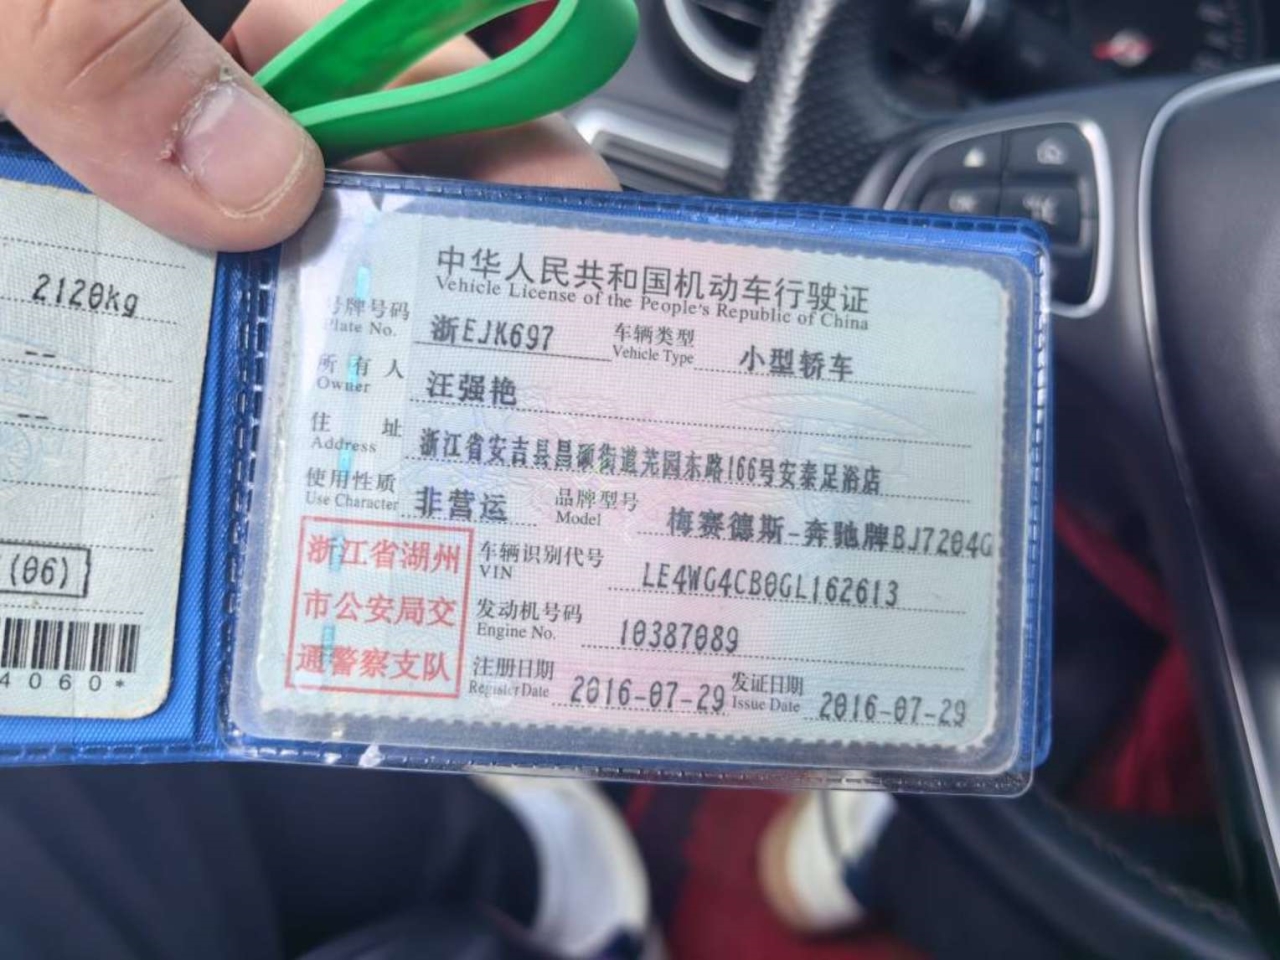 2120kg
--
--
(06)
4060*
中华人民共和国机动车行驶证
Vehicle License of the People's Republic of China
号牌号码 浙EJK697 车辆类型 小型轿车
Plate No. Vehicle Type
所有人 汪强艳
Owner
住址 浙江省安吉县昌硕街道芜园东路166号安泰足浴店
Address
使用性质 非营运 品牌型号 梅赛德斯-奔驰牌BJ7204G
Use Character Model
浙江省湖州
市公安局交
通警察支队
车辆识别代号 LE4WG4CB0GL162613
VIN
发动机号码 10387089
Engine No.
注册日期 2016-07-29 发证日期 2016-07-29
Register Date Issue Date